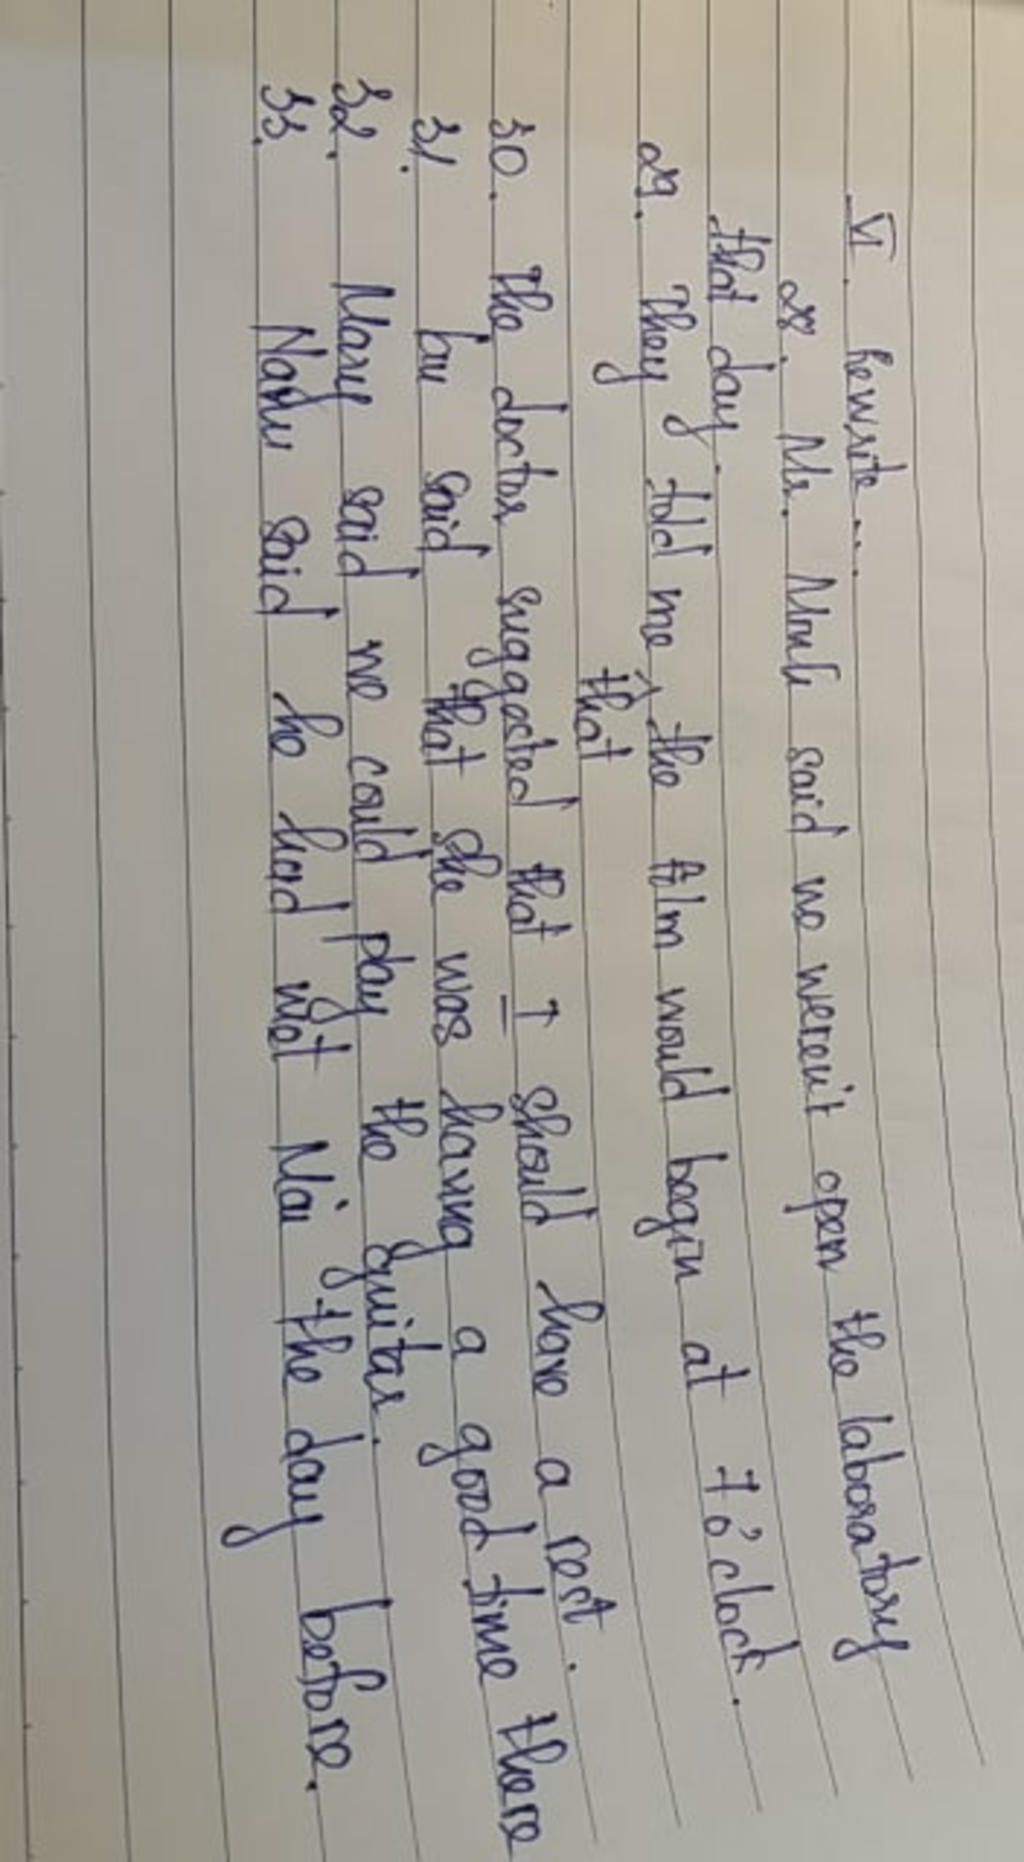 VI. Rewrite...
28. Mr. Minh said we weren't open the laboratory
that day.
29. They told me ^ the film would begin at 7 o'clock.
that
30. The doctor suggested that I should have a rest.
31. Lan said that she was having a good time there
32. Mary said we could play the guitar.
33. Nam said he had met Mai the day before.